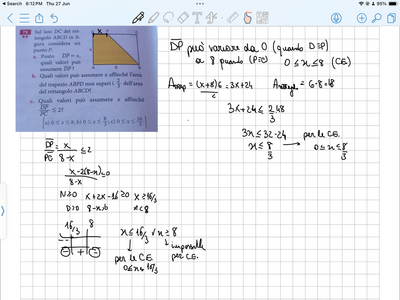 6:12 PM Thu 27 Jun
31%
Sul lato DC del ret-
tangolo ABCD in fi-
gura considera un
punto P.
a. Posto DP = x,
quali valori può
assumere DP?
b. Quali valori può assumere x affinché l'area
del trapezio ABPD non superi i 2/3 dell'area
del rettangolo ABCD?
c. Quali valori può assumere x affinché
DP/PC ≤ 2?
x
DP può variare da 0 (quando D≡P)
a 8 quando (P≡C) 0 ≤ x ≤ 8 (C.E)
= (x+8)6/2 = 3x+24
= 6·8 = 48
3x+24 ≤ 2/3 48
3x ≤ 32-24 per le C.E.
x ≤ 8/3 → 0 ≤ x ≤ 8/3
DP/PC = x/8-x ≤ 2
x-2(8-x)/8-x ≤ 0
N≥0 x+2x-16 ≥0 x ≥ 16/3
D>0 8-x>0 x<8
16/3 8
− + −
x ≤ 16/3 ∨ x ≥ 8
per le C.E. impossibile
0 ≤ x ≤ 16/3 per C.E.